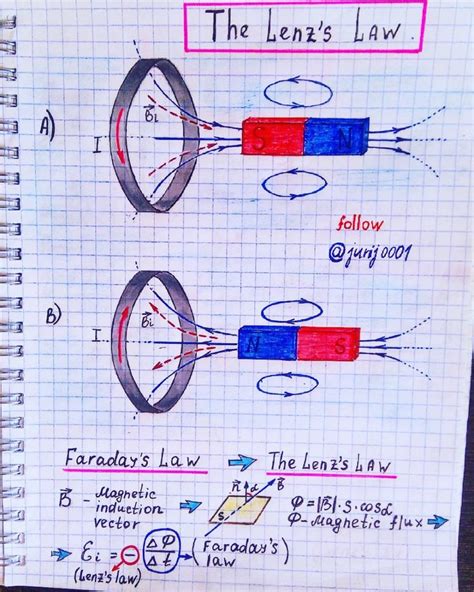 The Lenz's Law.
A)
I
B⃗i
S N
follow
@jurij0001
B)
I
B⃗i
N S
Faraday's Law ⇒ The Lenz's Law
B⃗ - Magnetic induction vector ⇒
n⃗ α B⃗
S
Φ = |B⃗|·S·cosα
Φ - Magnetic flux ⇒
⇒ Ɛi = - ΔΦ/Δt - (Faraday's law)
(Lenz's law)